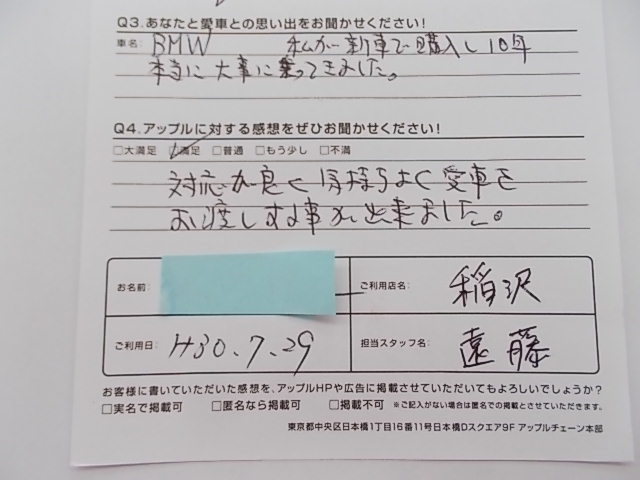 Q3.あなたと愛車との思い出をお聞かせください!
車名: BMW 私が新車で購入し10年
本当に大事に乗ってきました。
Q4.アップルに対する感想をぜひお聞かせください!
□大満足 ☑満足 □普通 □もう少し □不満
対応が良く気持ちよく愛車を
お渡しする事が出来ました。
お名前 ご利用店名: 稲沢
ご利用日: H30.7.29 担当スタッフ名: 遠藤
お客様に書いていただいた感想を、アップルHPや広告に掲載させていただいてもよろしいでしょうか?
□実名で掲載可 □匿名なら掲載可 □掲載不可 ※ご記入がない場合は匿名での掲載とさせていただきます。
東京都中央区日本橋1丁目16番11号日本橋Dスクエア9F アップルチェーン本部